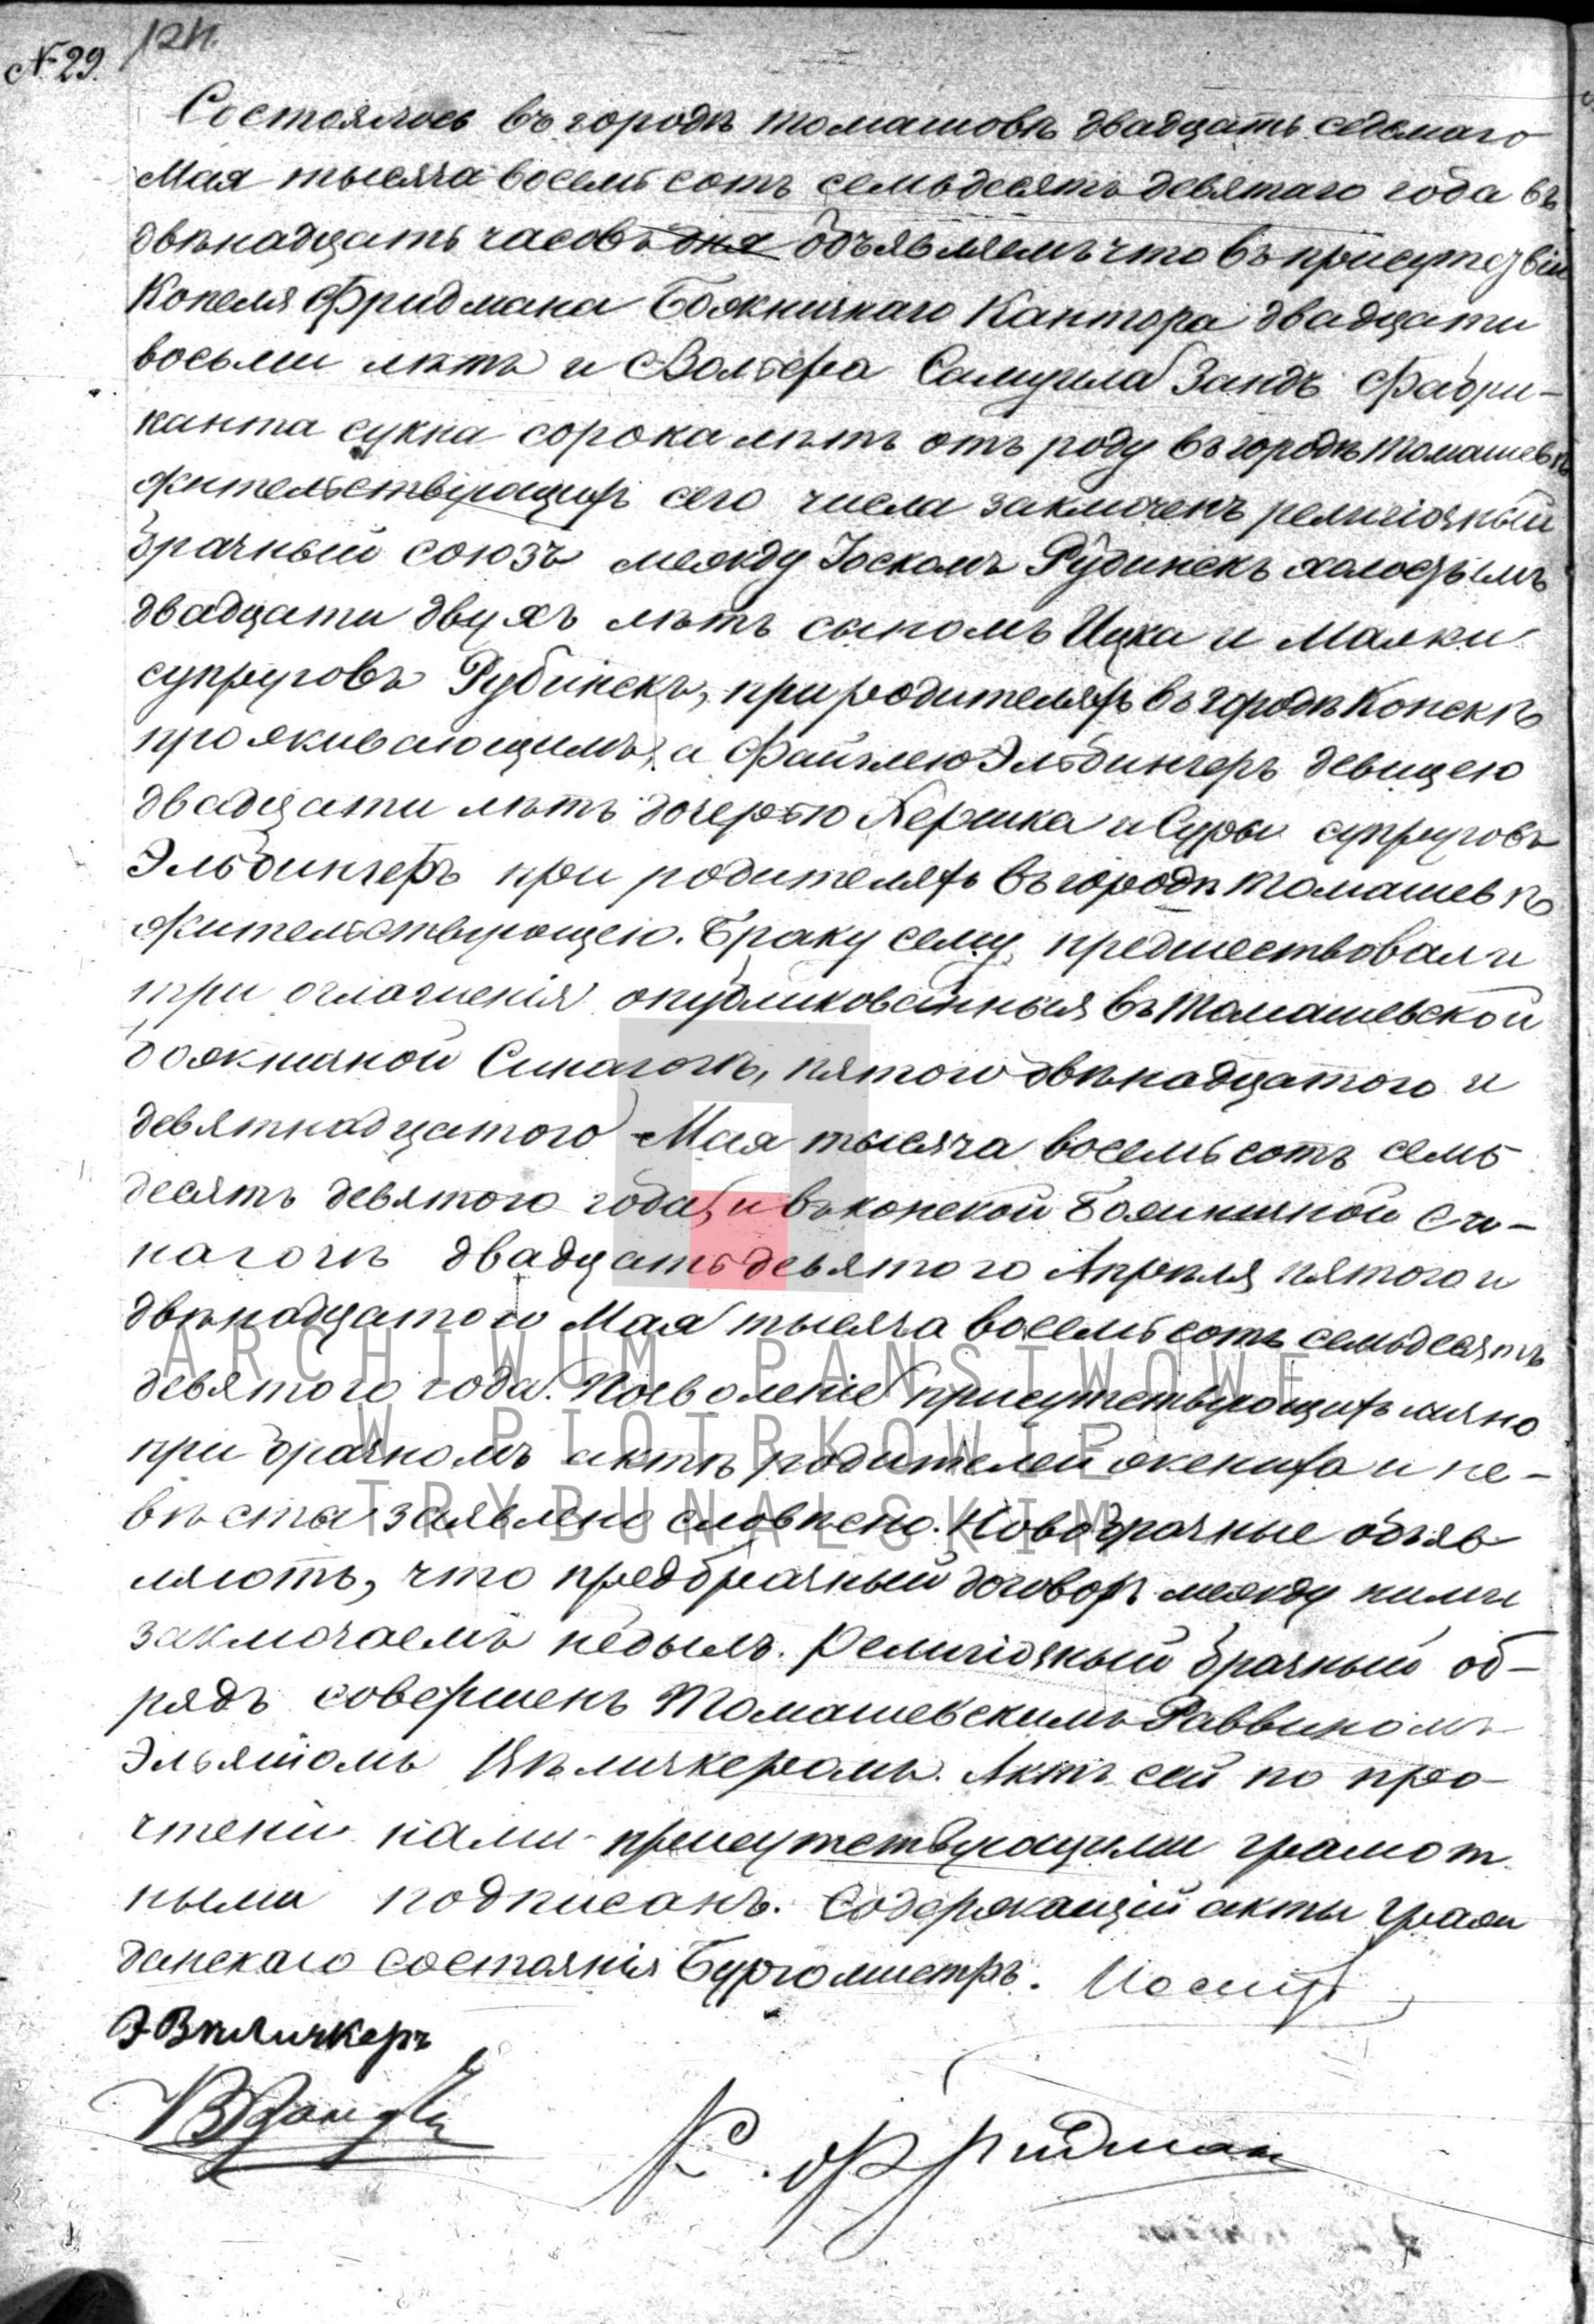 № 29.
Состоялось въ городѣ Томашовѣ двадцать седьмаго
Мая тысяча восемьсотъ семьдесять девятаго года въ
двѣнадцать часовъ дня объявляемъ что въ присутствіи
Копеля Фридмана Божничнаго Кантора двадцати
восьми лѣтъ и Вольфа Самуила Зандъ Фабри-
канта сукна сорока лѣтъ отъ роду въ городѣ Томашевѣ
жительствующихъ сего числа заключенъ религіозный
брачный союзъ между Іоскомъ Рубинекъ холостымъ
двадцати двухъ лѣтъ сыномъ Ицка и Малки
супруговъ Рубинекъ, при родителяхъ въ городѣ Конскѣ
проживающимъ, а Файглею Эльбингеръ девицею
двадцати лѣтъ дочерью Гершка и Суры супруговъ
Эльбингеръ при родителяхъ въ городѣ Томашевѣ
жительствующею. Браку сему предшествовали
три оглашенія опубликованныя въ Томашевской
божничной Синагогѣ, пятого двѣнадцатого и
девятнадцатого Мая тысяча восемьсотъ семь
десять девятого года, и въ Конской Божничной Си-
нагогѣ двадцать девятого Апрѣля пятого и
двѣнадцатого Мая тысяча восемьсотъ семьдесять
девятого года. Позволеніе присутствующихъ лично
при брачномъ актѣ родителей жениха и не-
вѣсты заявлено словесно. Новобрачные объяв
ляютъ, что предбрачный договоръ между ними
заключаемъ небылъ. Религіозный брачный об-
рядъ совершенъ Томашевскимъ Раввиномъ
Эльяшомъ Вѣличкеромъ. Актъ сей по про-
чтеніи нами присутствующими грамот
ными подписанъ. Содержащій акты граж
данскаго состоянія Бургомистръ.
Э Вѣличкеръ
В Зандъ
К. Фридман
ARCHIWUM PAŃSTWOWE
W PIOTRKOWIE
TRYBUNALSKIM